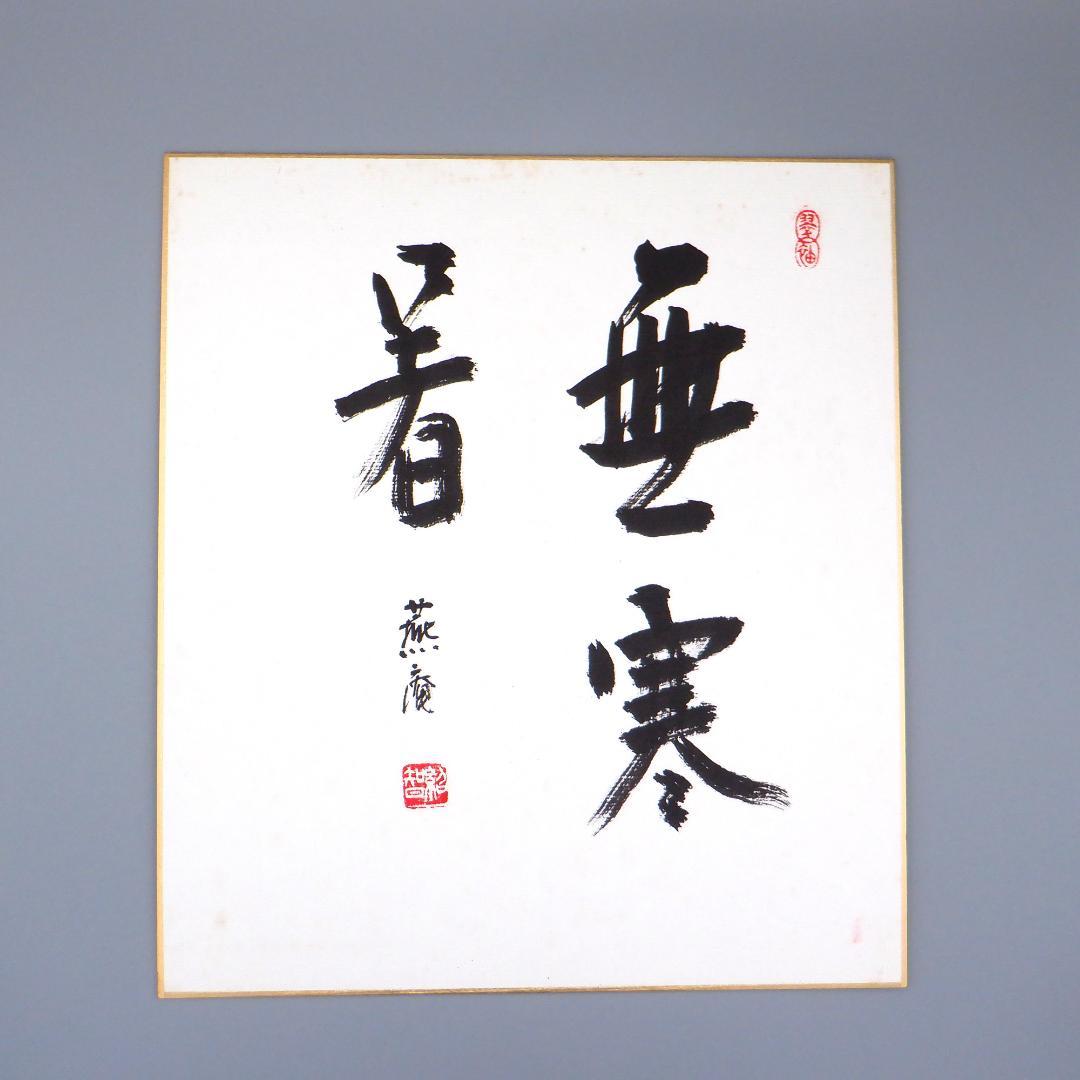 無寒
暑
燕庵